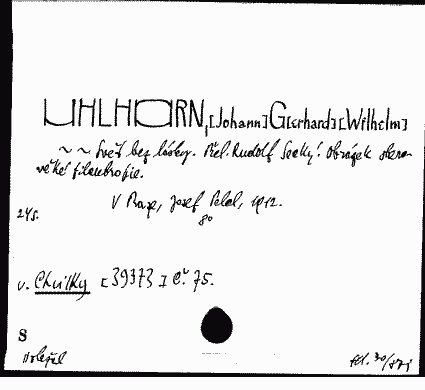 UHLHORN, [Johann] G[erhard] [Wilhelm]
~ ~ Svět bez lásky. Přel. Rudolf Secký. Obrázek staro-
věké filantropie.
V Praze, Josef Pelcl, 1912.
8°
24 s.
v. Chvilky [39373] č. 75.
S
Doležal